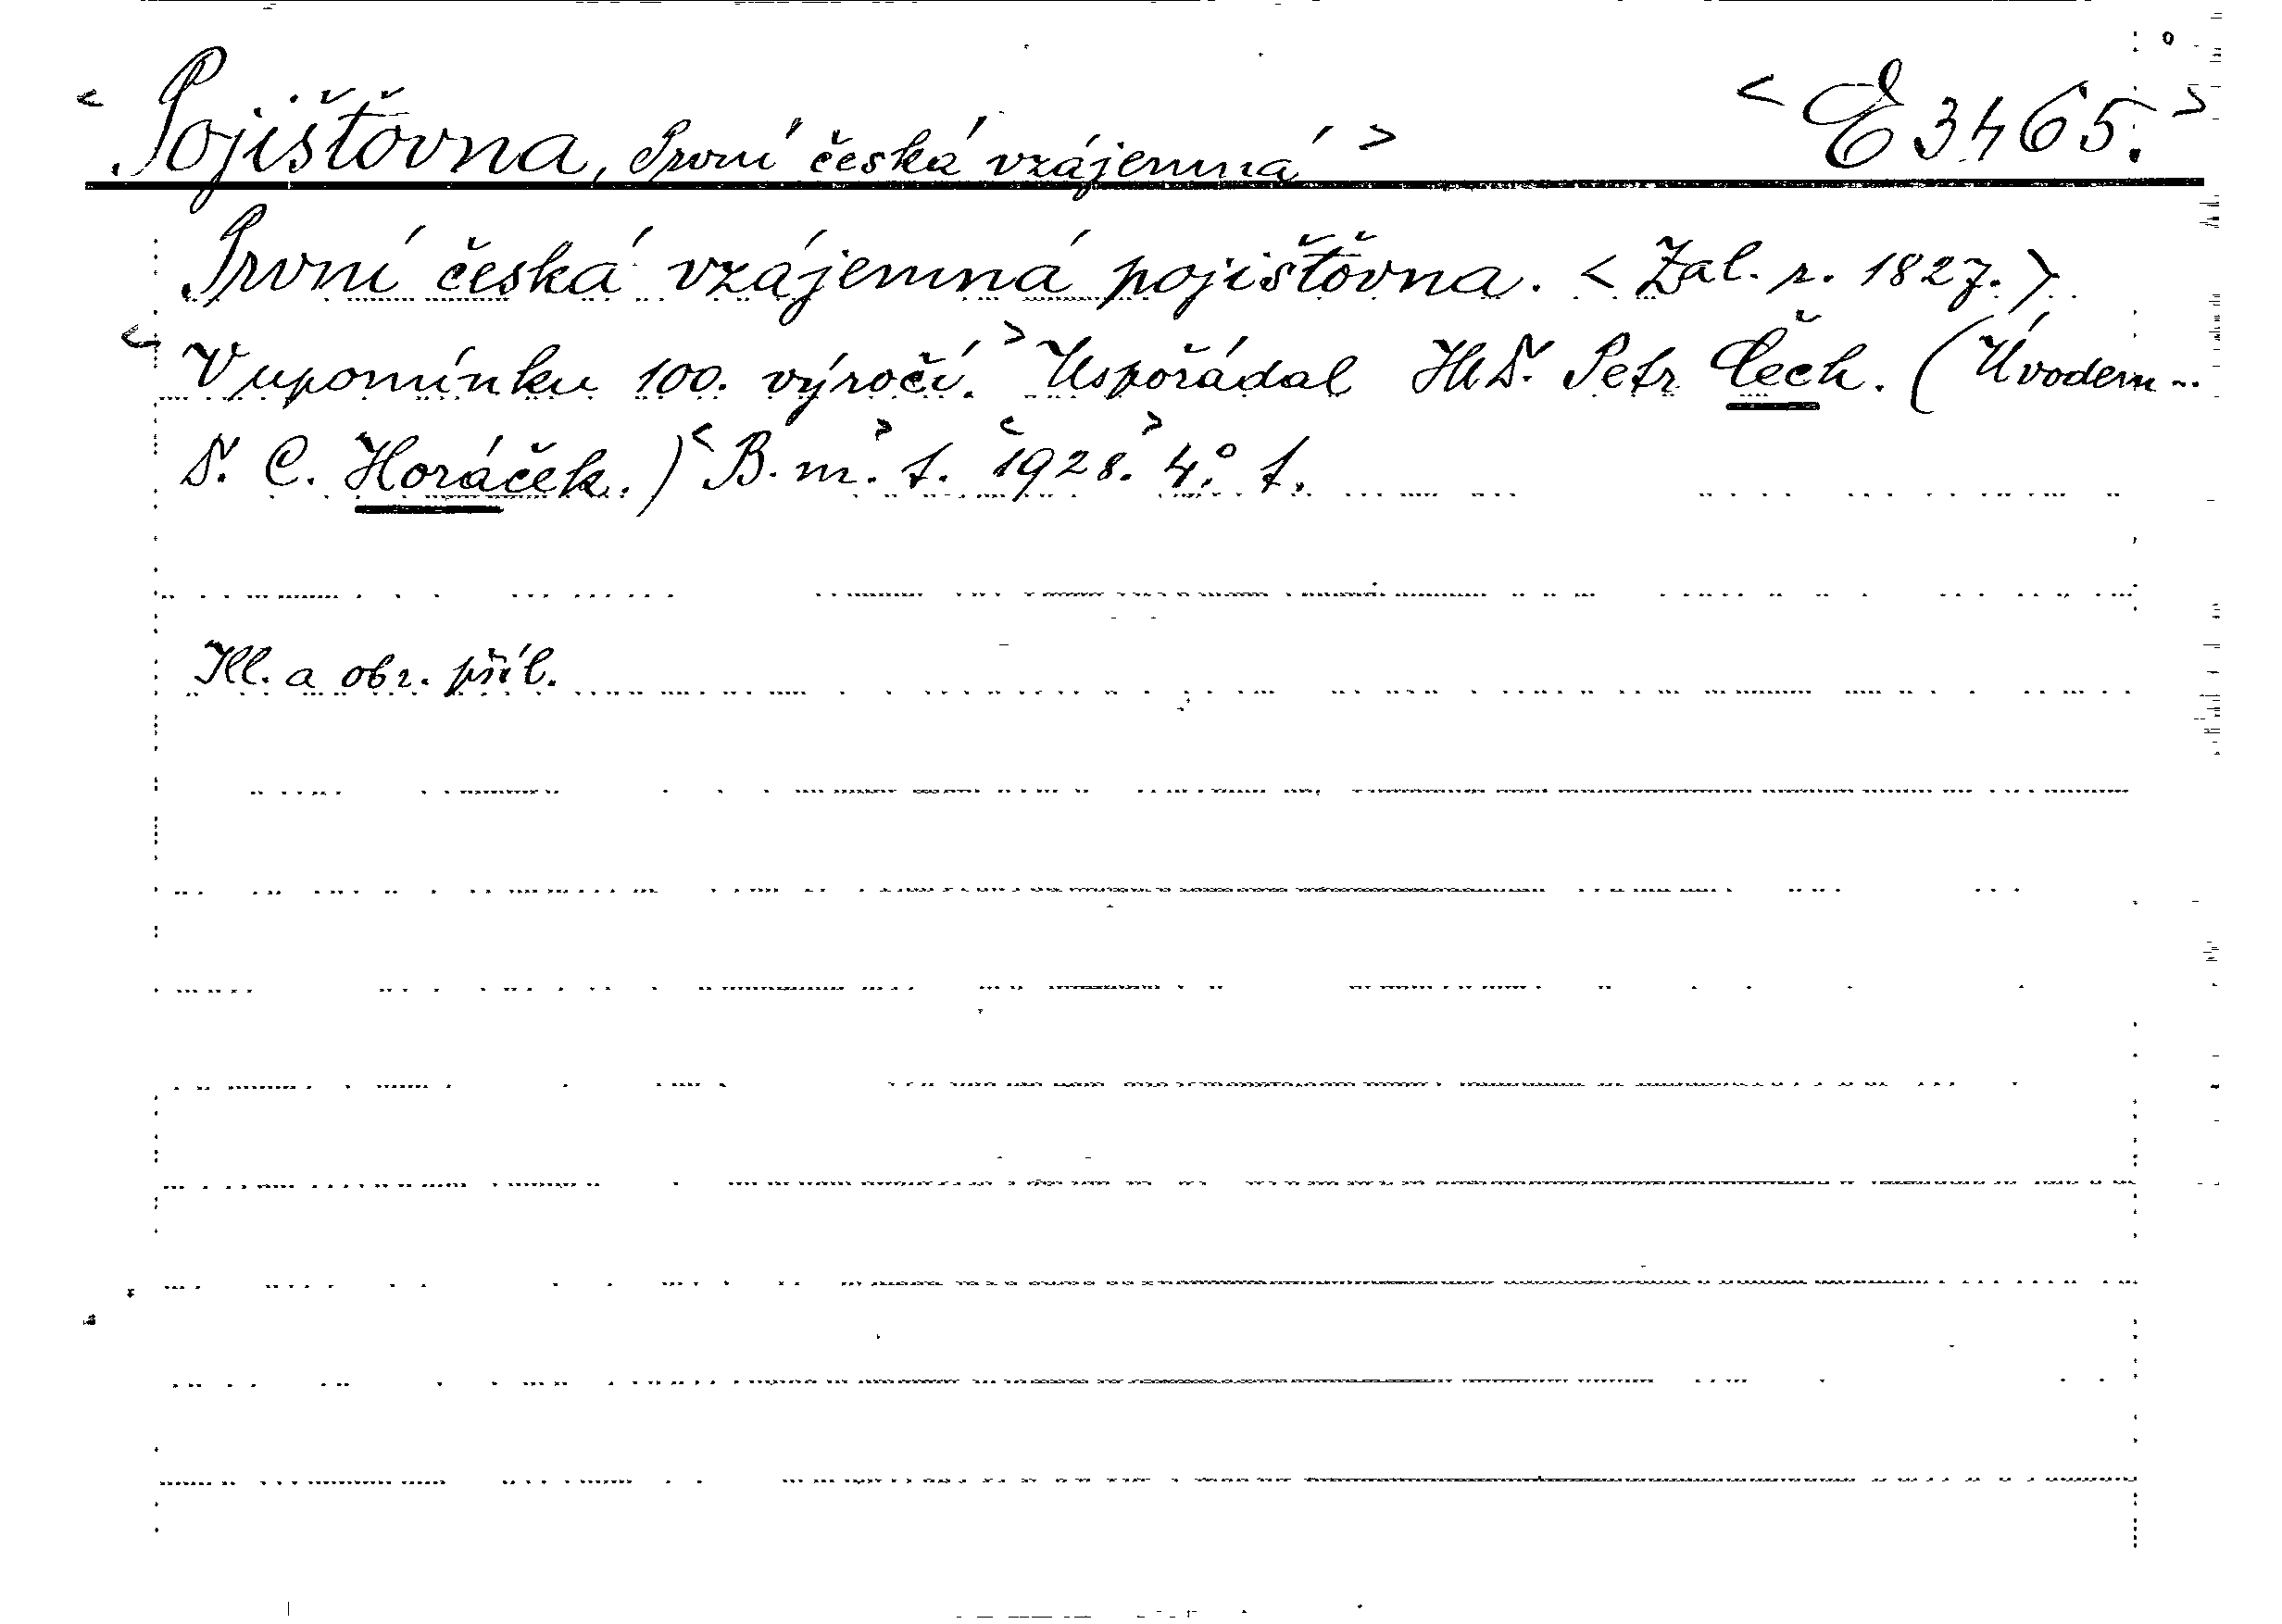 < Pojišťovna, První česká vzájemná > < E 3465. >
První česká vzájemná pojišťovna. < Zal. r. 1827. >
< V upomínku 100. výročí. > Uspořádal Petr Čech. (Úvodem ..
C. Horáček.) < B. m. > t. < 1928. > 4.° t.
Ill. a obr. příl.